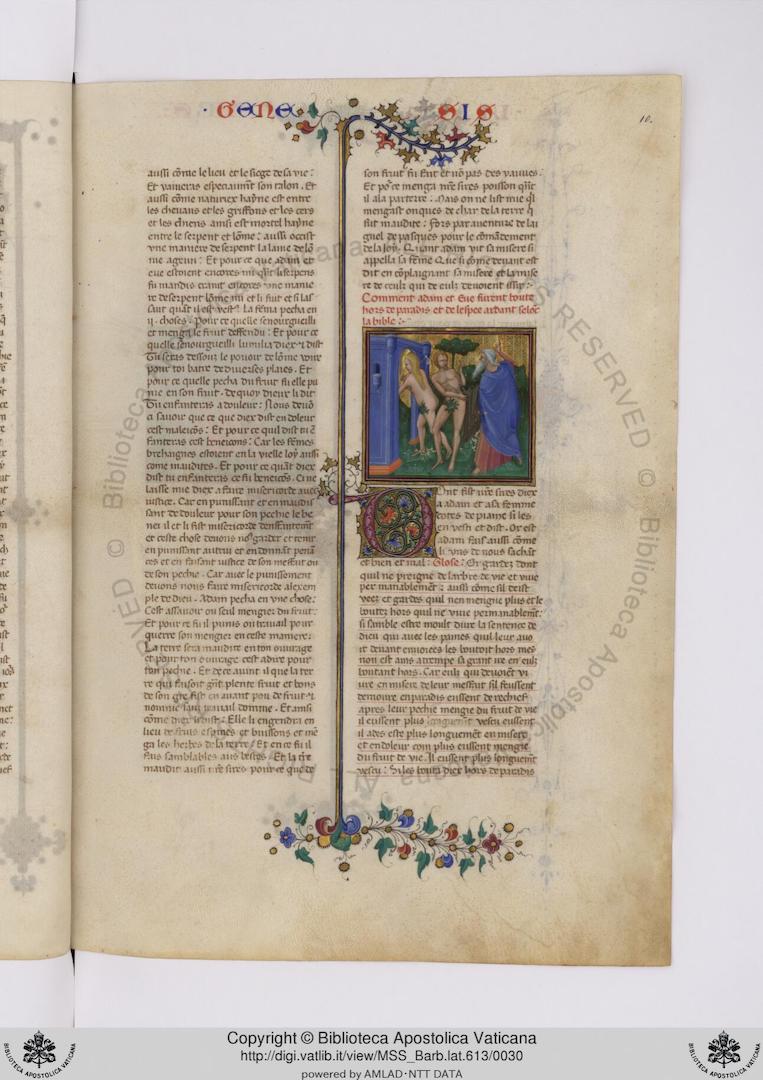 GENE
SIS
10.
aussi côme le lieu et le siege de sa vie :
Et vaincras especiaumt son talon . Et
aussi côme naturiex hayne est entre
les cheuaus et les griffons et les cers
et les chiens ainsi est mortel hayne
entre le serpent et lôme : aussi occist
vne maniere de serpent la laine de lô
me agenn : Et pour ce que adam et
eue estoient encores nu qnt li serpens
fu maudis erant encores vne manie
re de serpent lôme nu et li fuit et si las
saut quât il est vestu . La féme pecha en
ij . choses . Pour ce quelle senourgueilli
et menga le fruit deffendu : Et pour ce
quelle senourgueilli lumilia diex et dist
Tu seras dessouz le pouoir de lôme
pour toi batre de diuerses plaies . Et
pour ce quelle pecha du fruit fu elle pu
nie en son fruit . de quoy dieux li dit
Tu enfanteras a douleur : Nous deuôs
sauoir que ce que diex dist en doleur
cest maleicôs : Et pour ce quil dist tu e
fanteras cest beneicons : Car les fémes
brehaignes estoient en la vielle loy aussi
come maudites . Et pour ce quât diex
dist tu enfanteras ce fu beneicôs . Ci ne
laisse mie diex a faire misericorde auec
iustice . Car en punissant et en maudis
sant de douleur pour son pechie le be
nei il et li fist misericorde denfantemt
et ceste chose deuons nos garder et tenir
en punissant autrui et en donnât penâ
ces et en faisant iustice de son meffait ou
de son pechie . Car auec le punissement
deuons nous faire misericorde alexem
ple de dieu . Adam pecha en vne chose :
Cest assauoir ou seul mengier du fruit :
Et pour ce fu il punis ou trauail pour
querre son mengier en ceste maniere :
La terre sera maudite en ton ouurage
et pour ton ouurage cest a dire pour
ton pechie . Et de ce auint il que la ter
re qui faisoit gnt plente fruit et bons
de son gre fist en auant pou de fruit et
nomme sanz trauail domme . Et ainsi
côme diex li dist : Elle li engendra en
lieu de fruis espines et buissons et me
ga les herbes de la terre / Et en ce fu il
fais samblables aus bestes . Et la tre
maudit aussi nre sires pour ce que de
son fruit fu Eut et nô pas des yauues .
Et po ce menga nre sires poisson qnt
il ala par terre : Mais on ne list mie ql
mengast onques de char de la terre q
fut maudite : Fors par auenture de lai
gnel de pasques pour le cômâtement
de la loy . Quant adam vit sa misere si
appella sa féme Eue si côme deuant est
dit en côplaignant sa misere et la mise
re de ceulz qui de eulz deuoient issir :
Comment adam et Eue furent boute
hors de paradis et de lespee ardant selôc
la bible :
Dont fist nre sires diex
a adam et a sa femme
cotes de piaus si les
en vesti et dist . Or est
adam fais aussi côme
li vns de nous sachât
et bien et mal : Glose : Or gardez dont
quil ne preigne de larbre de vie et viue
per manablement : aussi côme sil deist
veez et gardes quil nen mengue plus et le
boutez hors quil ne viue permanablemt :
si samble estre moult dure la sentence de
dieu qui auec les paines quil leur auo
it deuant enioictes les boutoit hors mes
non est ains atrempe sa grant ire en eulz
boutant hors . Car eulz qui deuoiêt vi
ure en misere de leur meffait sil feussent
demoure en paradis eussent de rechief
apres leur pechie mengie du fruit de vie
il eussent plus longuemt vescu eussent
il ades este plus longuemêt en misere
et en doleur com plus eussent mengie
du fruit de vie . Il eussent plus longuemt
vescu : Si les bouta diex hors de paradis
Copyright © Biblioteca Apostolica Vaticana
http://digi.vatlib.it/view/MSS_Barb.lat.613/0030
powered by AMLAD·NTT DATA